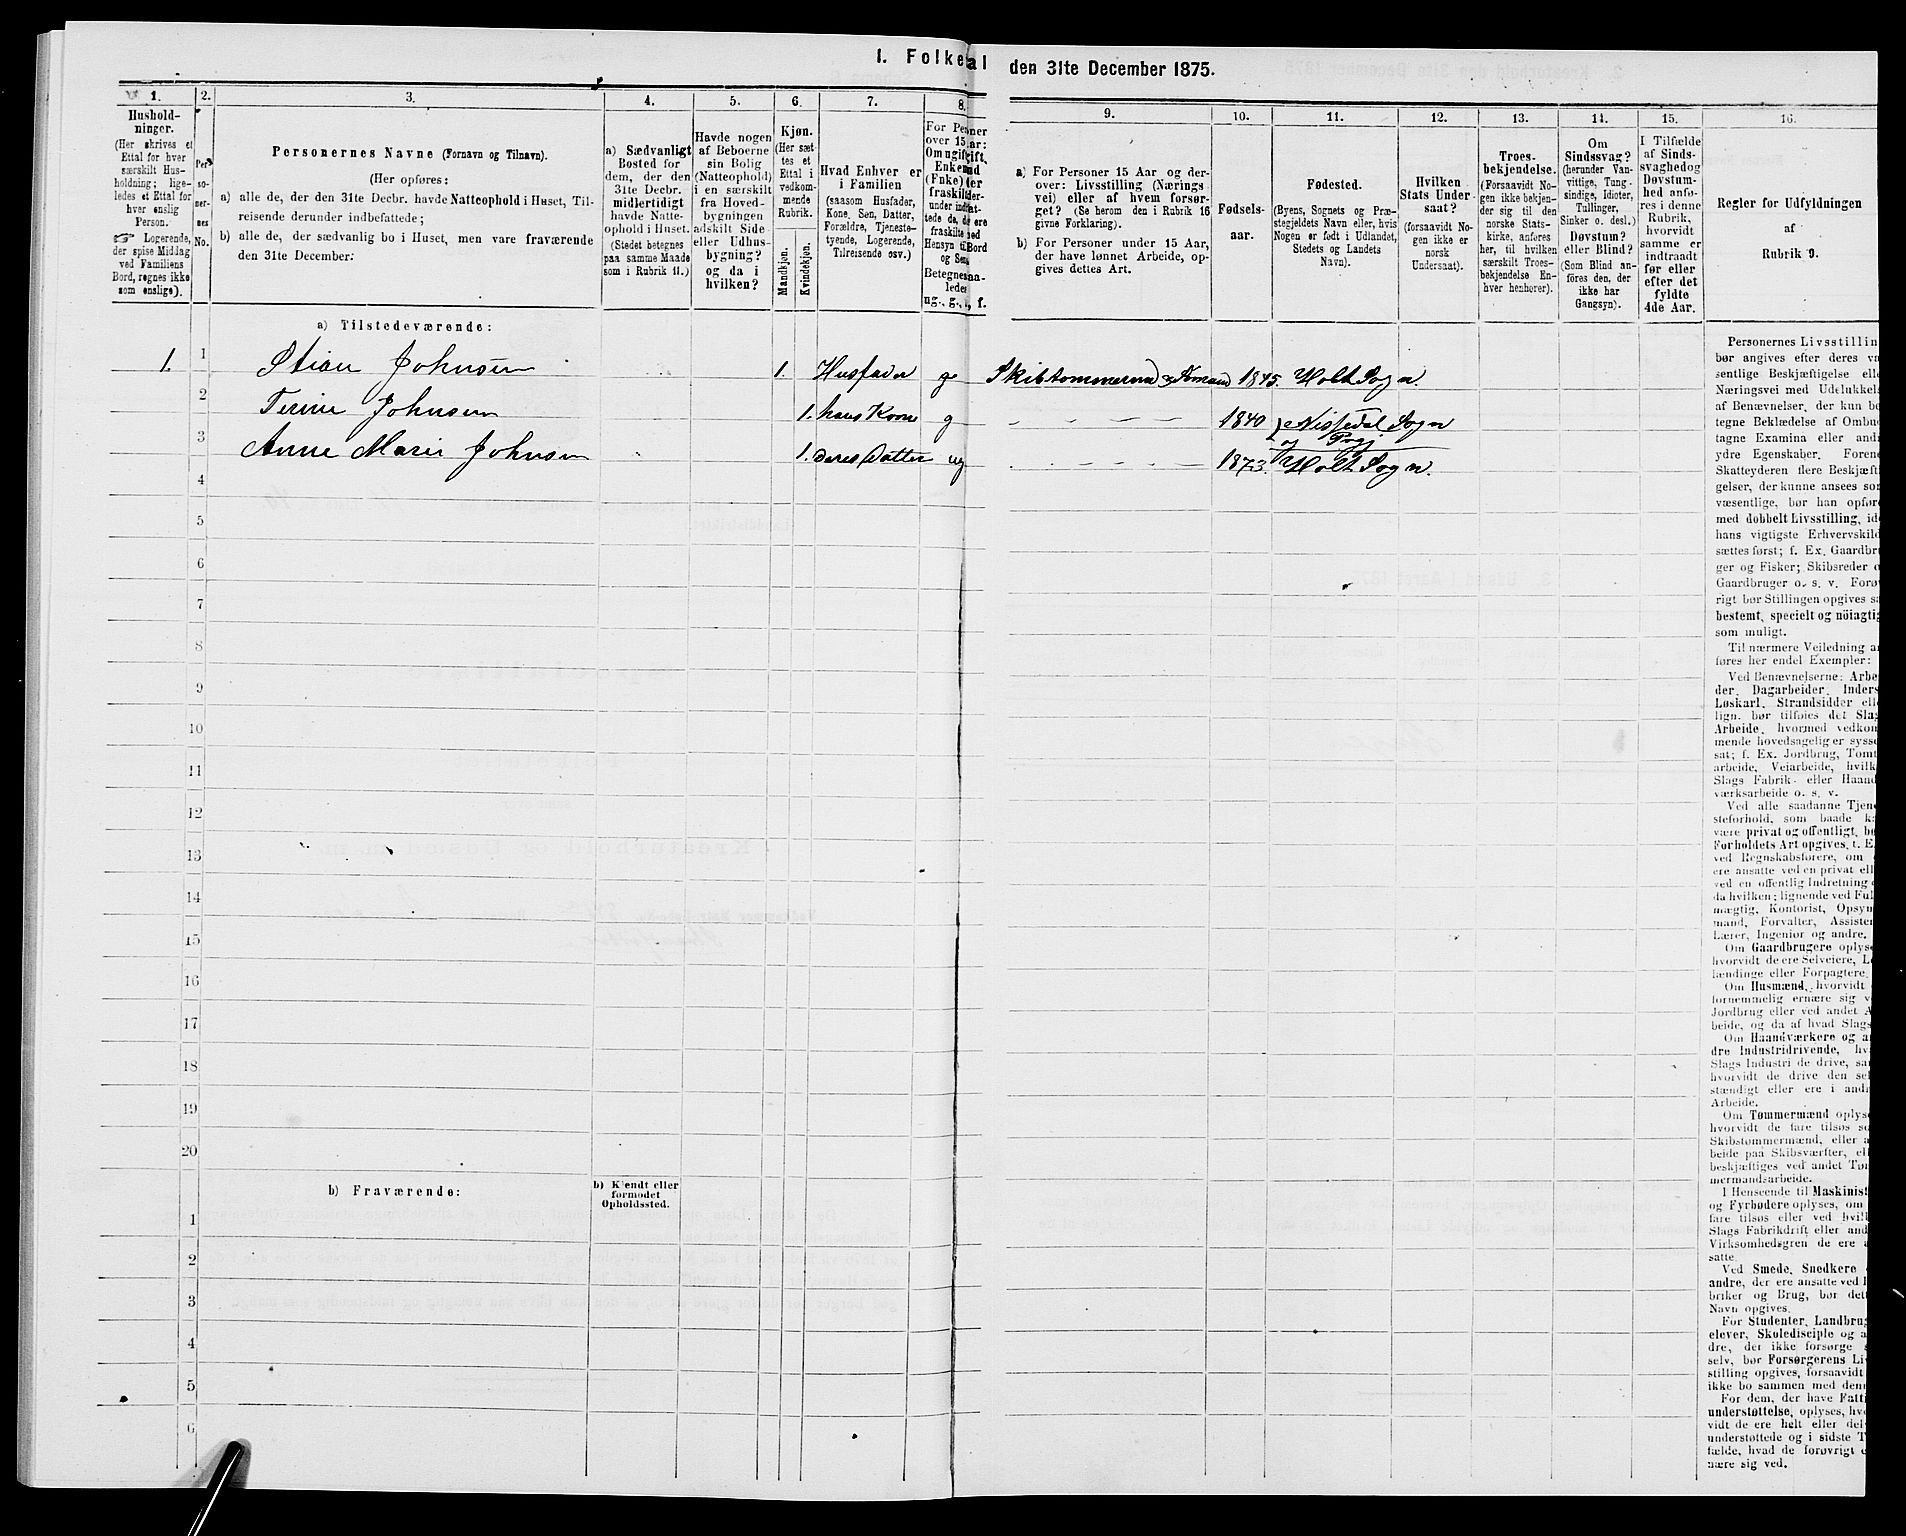 I. Folketal den 31te December 1875.
1. 2. 3. 4. 5. 6. 7. 8. 9. 10. 11. 12. 13. 14. 15. 16.
Hushold-
ninger.
(Her skrives et
Ettal for hver
særskilt Hus-
holdning; lige-
ledes et Ettal for
hver enslig
Person.
☞ Logerende,
der spise Middag
ved Familiens
Bord, regnes ikke
som enslige).
Per
so-
ner-
nes
No.
Personernes Navne (Fornavn og Tilnavn).
(Her opføres:
a) alle de, der den 31te Decbr. havde Natteophold i Huset, Til-
reisende derunder indbefattede;
b) alle de, der sædvanlig bo i Huset, men vare fraværende
den 31te December:
a) Sædvanligt
Bosted for
dem, der den
31te Decbr.
midlertidigt
havde Natte-
ophold i Huset.
(Stedet betegnes
paa samme Maade
som i Rubrik 11.)
Havde nogen
af Beboerne
sin Bolig
(Natteophold)
i en særskilt
fra Hoved-
bygningen
adskilt Side-
eller Udhus-
bygning?
og da i
hvilken?
Kjøn.
(Her sæt-
tes et
Ettal i
vedkom-
mende
Rubrik.
Mandkjøn.
Kvindekjøn.
Hvad Enhver er
i Familien
(saasom Husfader,
Kone, Søn, Datter,
Forældre, Tjeneste-
tyende, Logerende,
Tilreisende osv.)
a) For Personer 15 Aar og der-
over: Livsstilling (Nærings-
vei) eller af hvem forsør-
get? (Se herom den i Rubrik 16
givne Forklaring).
b) For Personer under 15 Aar,
der have lønnet Arbeide, op-
gives dettes Art.
Fødsels-
aar.
Fødested.
(Byens, Sognets og Præ-
stegjeldets Navn eller, hvis
Nogen er født i Udlandet,
Stedets og Landets
Navn).
Hvilken
Stats Under-
saat?
(forsaavidt No-
gen ikke er
norsk
Undersaat).
Troes-
bekjendelse.
(Forsaavidt No-
gen ikke bekjen-
der sig til den
norske Stats-
kirke, anføres
her, til hvilken
særskilt Troes-
bekjendelse En-
hver henhører).
Om
Sindssvag?
(herunder Van-
vittige, Tung-
sindige, Idioter,
Tullinger,
Sinker o. desl.)
Døvstum?
eller Blind?
(Som Blind an-
føres den, der
ikke har
Gangsyn).
I Tilfælde
af Sinds-
svaghed og
Døvstum-
hed anfø-
res i denne
Rubrik,
hvorvidt
samme er
indtraadt
før eller
efter det
fyldte
4de Aar.
Regler for Udfyldningen
af
Rubrik 9.
a) Tilstedeværende:
1. 1 Stian Johnsen 1. Husfader g Skibstømmermd 1845. Holt Sogn.
2 Terine Johnsen 1. hans Kone g 1840 Nissedal Sogn
og Prgj
3 Anne Marie Johnsen 1. deres Datter ug 1873. Holt Sogn.
4
5
6
7
8
9
10
11
12
13
14
15
16
17
18
19
20
b) Fraværende: b) Kjendt eller
formodet
Opholdssted.
1
2
3
4
5
6
Personernes Livsstillin
bør angives efter deres va
sentlige Beskjæftigelse elle
Næringsvei med Udelukkels
af Benævnelser, der kun be
tegne Beklædelse af Ombu
tagne Examina eller andr
ydre Egenskaber. Foren
Skatteyderen flere Beskjæfti
gelser, der kunne ansees som
væsentlige, bør han opføre
med dobbelt Livsstilling, ide
hans vigtigste Erhvervskild
sættes først; f. Ex. Gaardbru
ger og Fisker; Skibsreder o
Gaardbruger o. s. v. Forøv
rigt bør Stillingen opgives sa
bestemt, specielt og nöiagtig
som muligt.
Til nærmere Veiledning an
føres her endel Exempler:
Ved Benævnelserne: Arbe
der, Dagarbeider, Inders
Løskarl, Strandsidder elle
lign. bør tilføies det Slag
Arbeide, hvormed vedkom
mende hovedsagelig er sysse
sat; f. Ex. Jordbrug, Tomt
arbeide, Veiarbeide, hvilk
Slags Fabrik- eller Haand
værksarbeide o. s. v.
Ved alle saadanne Tjene
steforhold, som baade ka
være privat og offentligt, bø
Forholdets Art opgives, t. E
ved Regnskabsførere, om
ere ansatte ved en privat ell
ved en offentlig Indretning
da hvilken; lignende ved Ful
mægtig, Kontorist, Opsyn
mand, Forvalter, Assisten
Lærer, Ingeniør og andre.
Om Gaardbrugere oplyse
hvorvidt de ere Selveiere, Le
lændinge eller Forpagtere.
Om Husmænd, hvorvidt
fornemmelig ernære sig v
Jordbrug eller ved andet A
beide, og da af hvad Slags
Om Haandværkere og a
dre Industridrivende, hv
Slags Industri de drive, sa
hvorvidt de drive den sel
stændigt eller ere i andr
Arbeide.
Om Tømmermænd oplyse
hvorvidt de fare tilsøs so
Skibstømmermænd, eller a
beide paa Skibsværfter, ell
beskjæftiges ved andet Tøm
mermandsarbeide.
I Henseende til Maskinist
og Fyrbødere oplyses, om
fare tilsøs eller ved hvilk
Slags Fabrikdrift eller and
Virksomhedsgren de ere a
satte.
Ved Smede, Snedkere
andre, der ere ansatte ved F
briker og Brug, bør dett
Navn opgives.
For Studenter, Landbrug
elever, Skoledisciple og a
dre, der ikke forsørge s
selv, bør Forsørgerens Liv
stilling opgives, forsaavidt
ikke bo sammen med denn
For dem, der have Fatti
understøttelse, oplyses, hvo
vidt de ere helt eller del
understøttede og i sidste T
fælde, hvad de forøvrigt
nære sig ved.